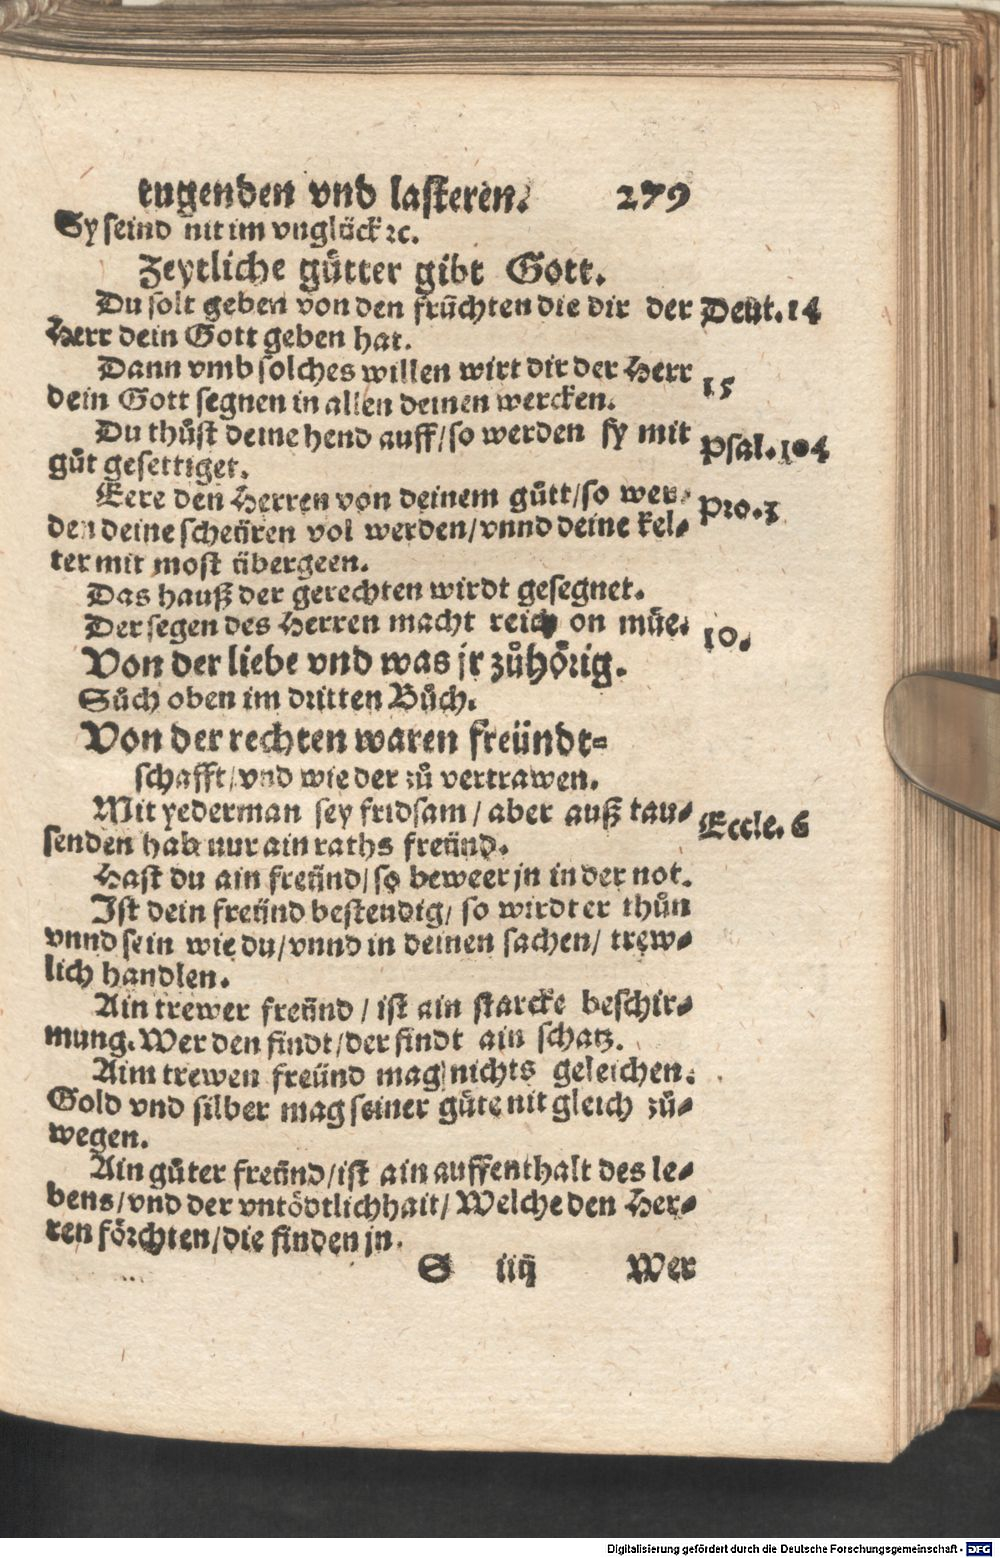 tugenden vnd lasteren. 279
Sy seind nit im vnglück ꝛc.
Zeytliche gůtter gibt Gott.
Du solt geben von den früchten die dir der Deut. 14
Herr dein Gott geben hat.
Dann vmb solches willen wirt dir der Herr 15
dein Gott segnen in allen deinen wercken.
Du thůst deine hend auff/ so werden sy mit Psal. 104
gůt gesettiget.
Eere den Herren von deinem gůtt/ so wer-
den deine scheüren vol werden/ vnnd deine kel- Pro. 3
ter mit most übergeen.
Das hauß der gerechten wirdt gesegnet.
Der segen des Herren macht reich on müe. 10.
Von der liebe vnd was jr zůhörig.
Sůch oben im dritten Bůch.
Von der rechten waren freündt-
schafft/ vnd wie der zů vertrawen.
Mit yederman sey fridsam/ aber auß tau- Eccle. 6
senden hab nur ain raths freünd.
Hast du ain freünd/ so beweer jn in der not.
Ist dein freünd bestendig/ so wirdt er thůn
vnnd sein wie du/ vnnd in deinen sachen/ trew-
lich handlen.
Ain trewer freünd/ ist ain starcke beschir-
mung. Wer den findt/ der findt ain schatz.
Aim trewen freünd mag nichts geleichen.
Gold vnd silber mag seiner güte nit gleich zů-
wegen.
Ain gůter freünd/ ist ain auffenthalt des le-
bens/ vnd der vntödtlichhait/ Welche den Her-
ren förchten/ die finden jn.
S iiij Wer
Digitalisierung gefördert durch die Deutsche Forschungsgemeinschaft - DFG